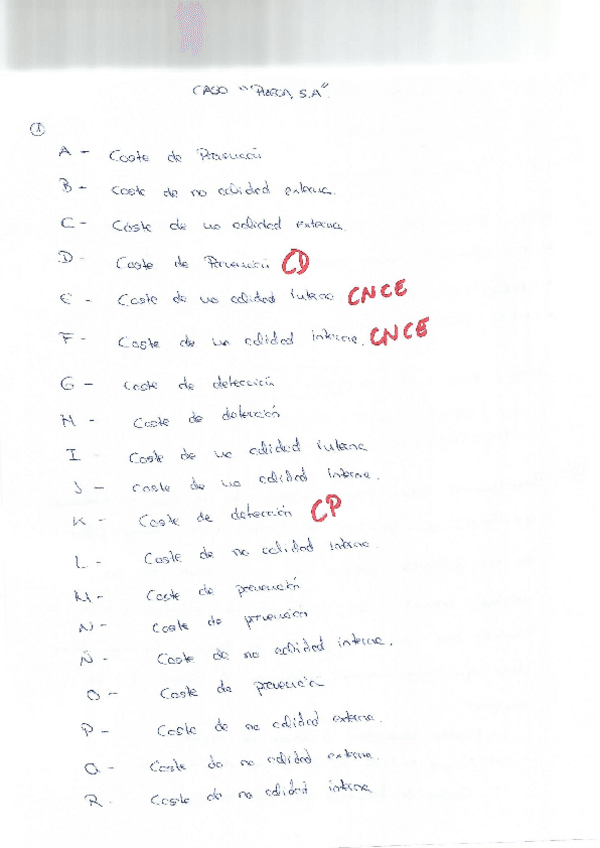 CASO " S.A".
①
A - Coste de Prevención
B - Coste de no calidad externa.
C - Coste de no calidad externa.
D - Coste de Prevención CD
E - Coste de no calidad interna CNCE
F - Coste de no calidad interna. CNCE
G - Coste de detección
H - Coste de detección
I Coste de no calidad interna
J - Coste de no calidad interna.
K - Coste de detección CP
L - Coste de no calidad interna.
M - Coste de prevención
N - Coste de prevención
Ñ - Coste de no calidad interna.
O - Coste de prevención
P - Coste de no calidad externa.
Q - Coste de no calidad externa.
R - Coste de no calidad interna